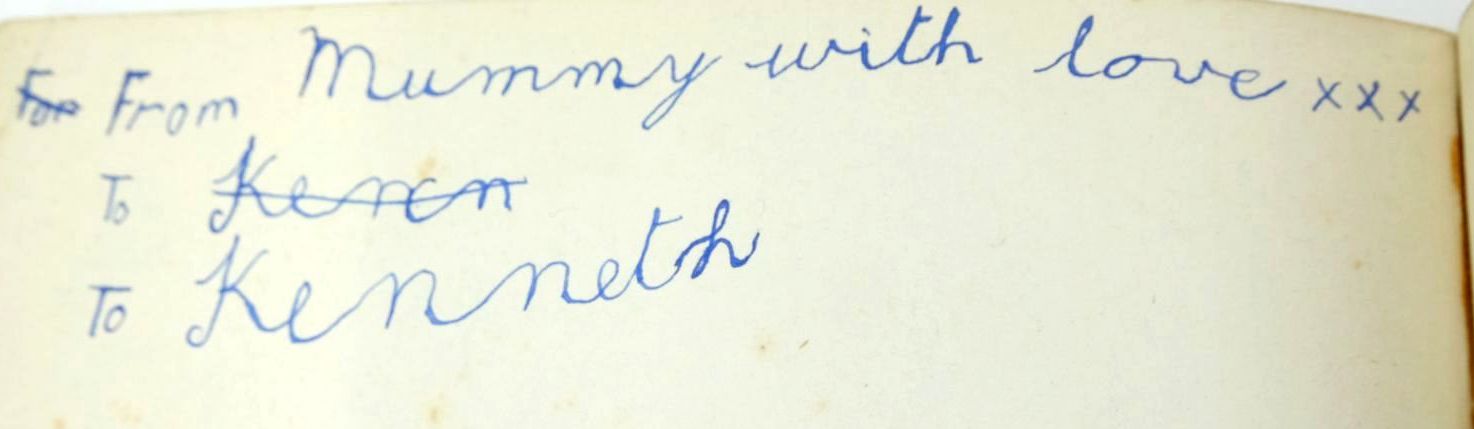 For From Mummy with love xxx
To Kenen
To Kenneth